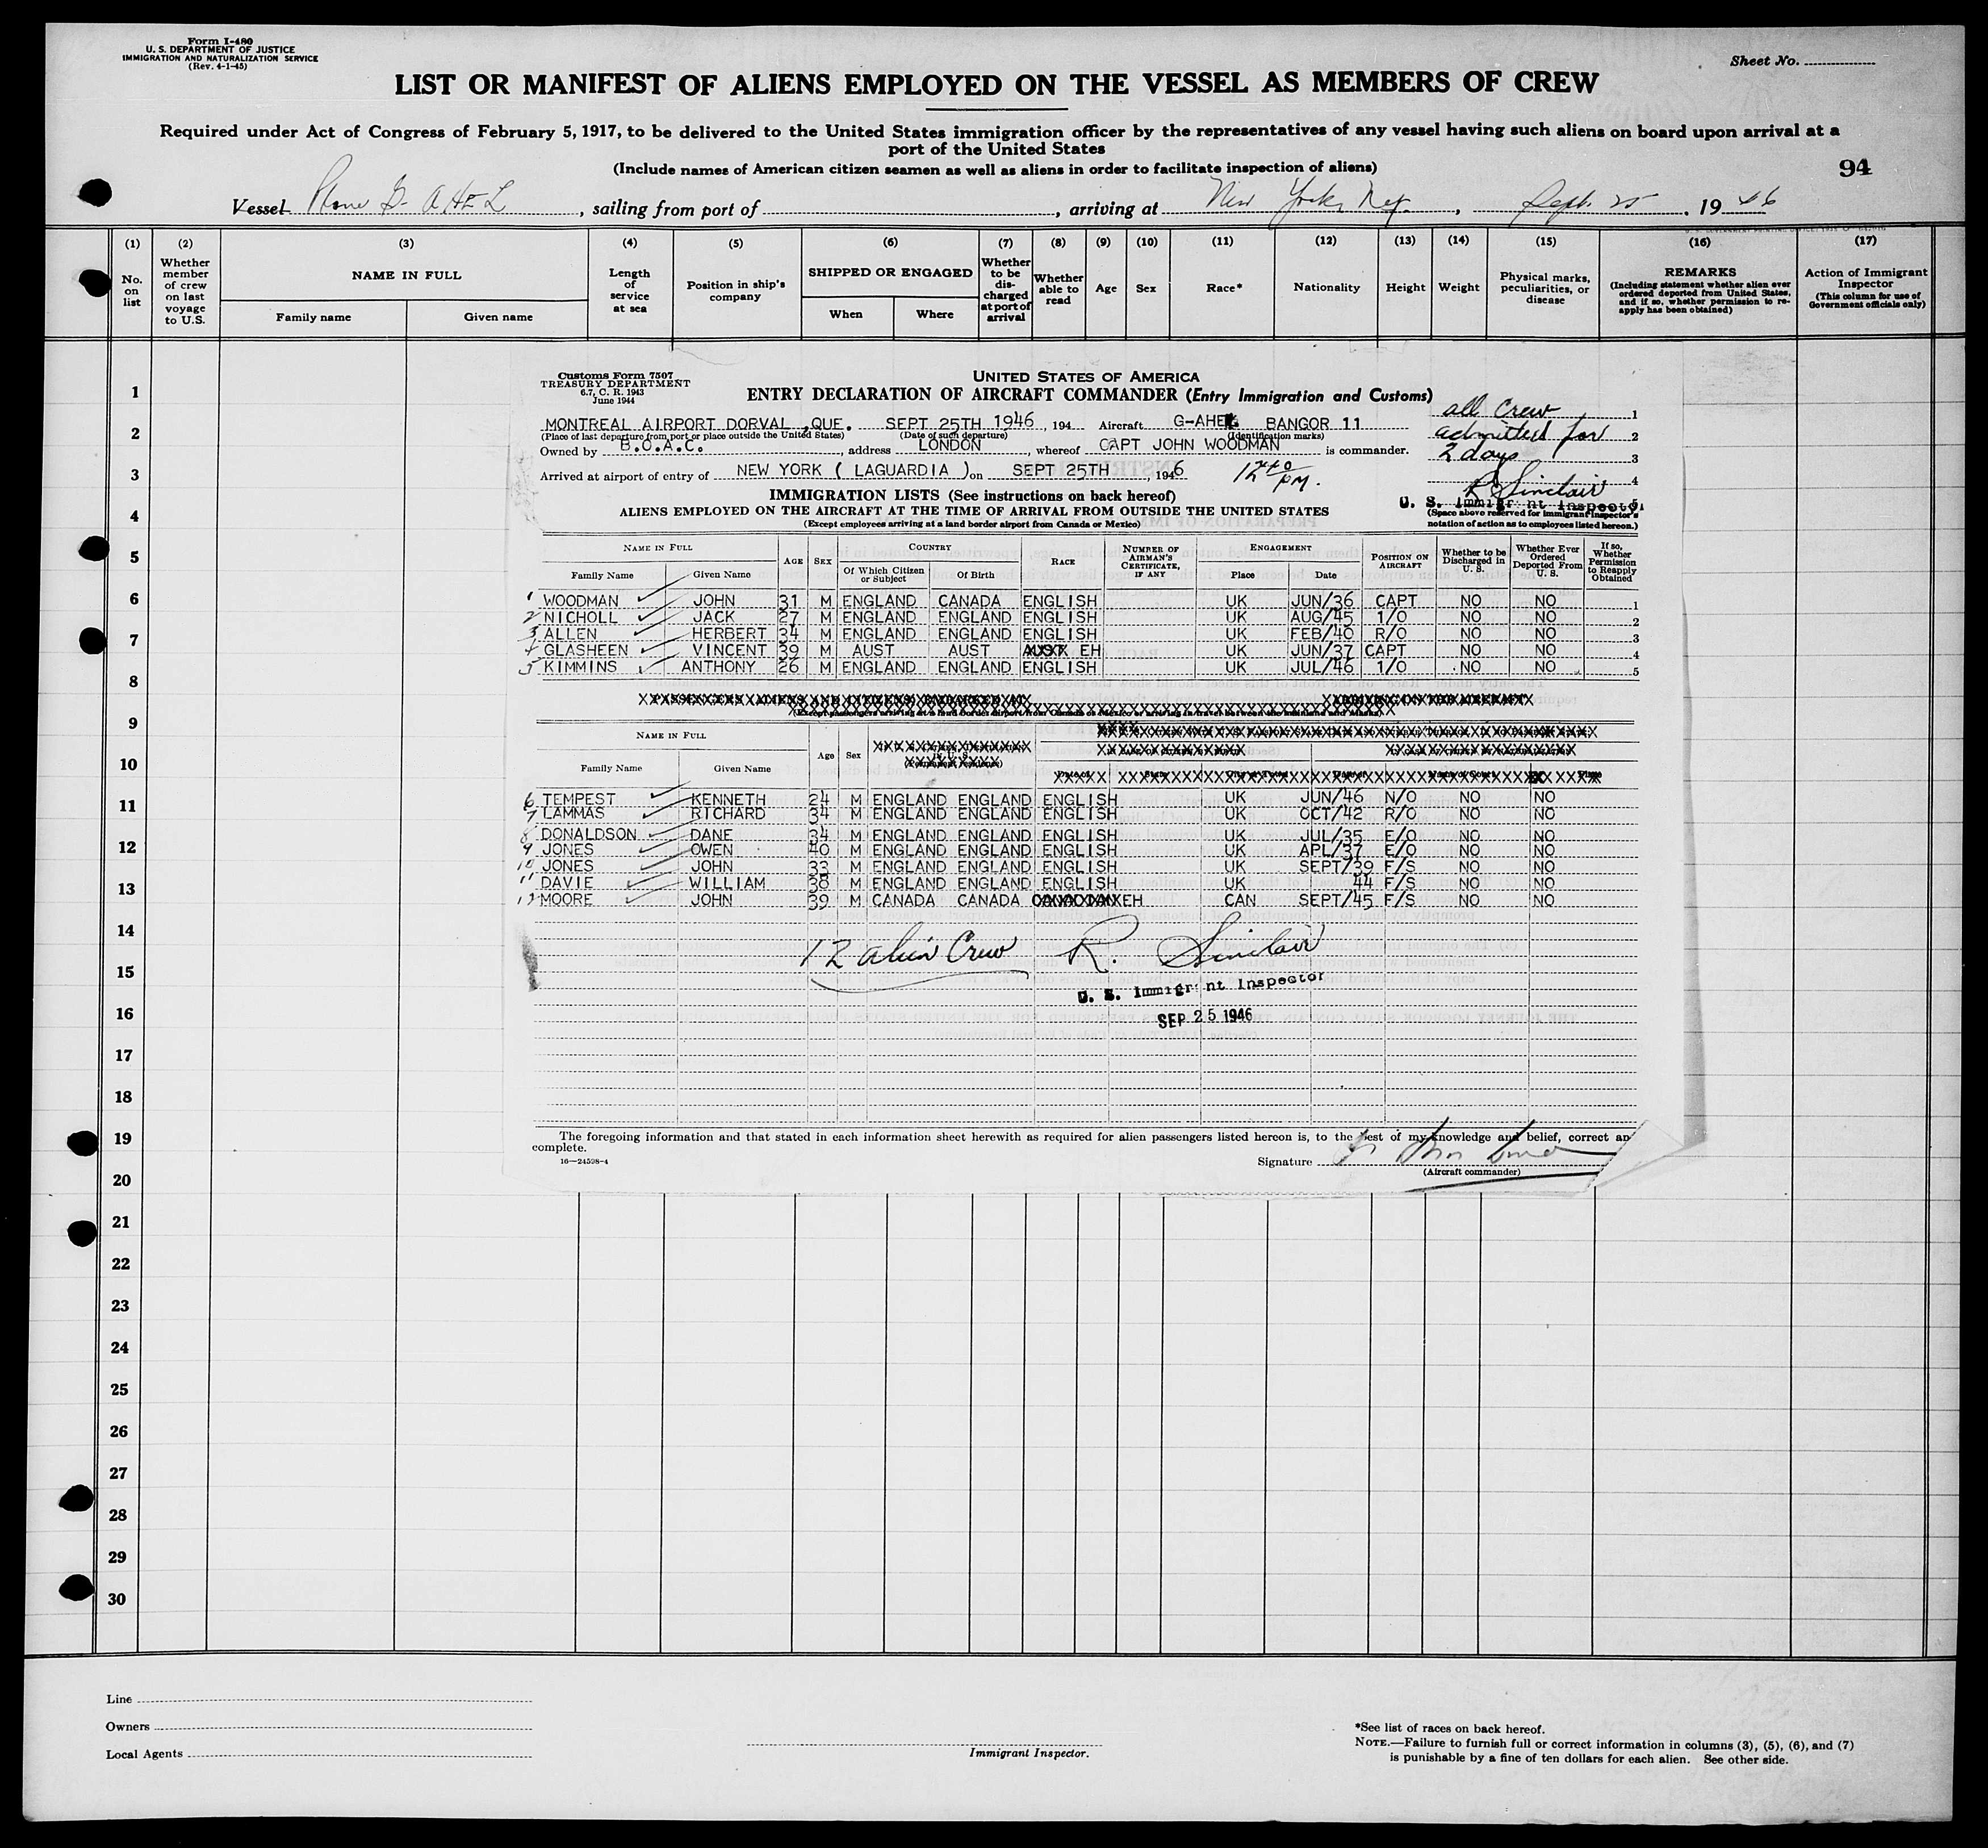 Form I-480
U. S. DEPARTMENT OF JUSTICE
IMMIGRATION AND NATURALIZATION SERVICE
(Rev. 4-1-45)
Sheet No.
LIST OR MANIFEST OF ALIENS EMPLOYED ON THE VESSEL AS MEMBERS OF CREW
Required under Act of Congress of February 5, 1917, to be delivered to the United States immigration officer by the representatives of any vessel having such aliens on board upon arrival at a
port of the United States
(Include names of American citizen seamen as well as aliens in order to facilitate inspection of aliens)
94
Vessel Plane G-AHEL, sailing from port of , arriving at New York, , Sept. 25, 1946
(1) No. on list
(2) Whether member of crew on last voyage to U.S.
(3) NAME IN FULL
Family name Given name
(4) Length of service at sea
(5) Position in ship's company
(6) SHIPPED OR ENGAGED
When Where
(7) Whether to be discharged at port of arrival
(8) Whether able to read
(9) Age
(10) Sex
(11) Race*
(12) Nationality
(13) Height
(14) Weight
(15) Physical marks, peculiarities, or disease
(16) REMARKS
(Including statement whether alien ever ordered deported from United States, and if so, whether permission to re-apply has been obtained)
(17) Action of Immigrant Inspector
(This column for use of Government officials only)
1
2
3
4
5
6
7
8
9
10
11
12
13
14
15
16
17
18
19
20
21
22
23
24
25
26
27
28
29
30
Customs Form 7507
TREASURY DEPARTMENT
6.7, C. R. 1943
June 1944
UNITED STATES OF AMERICA
ENTRY DECLARATION OF AIRCRAFT COMMANDER (Entry Immigration and Customs)
MONTREAL AIRPORT DORVAL ,QUE. SEPT 25TH 1946, 194 Aircraft G-AHEL BANGOR 11
(Place of last departure from port or place outside the United States) (Date of such departure) (Identification marks)
Owned by B.O.A.C., address LONDON, whereof CAPT JOHN WOODMAN is commander.
Arrived at airport of entry of NEW YORK ( LAGUARDIA ) on SEPT 25TH, 1946 12 40 PM.
all Crew 1
admitted for 2
2 days 3
4
R Sinclair 5
U. S. Immigrant Inspector
(Space above reserved for immigrant inspector's
notation of action as to employees listed hereon.)
IMMIGRATION LISTS (See instructions on back hereof)
ALIENS EMPLOYED ON THE AIRCRAFT AT THE TIME OF ARRIVAL FROM OUTSIDE THE UNITED STATES
(Except employees arriving at a land border airport from Canada or Mexico)
NAME IN FULL AGE SEX COUNTRY RACE NUMBER OF AIRMAN'S CERTIFICATE, IF ANY ENGAGEMENT POSITION ON AIRCRAFT Whether to be Discharged in U. S. Whether Ever Ordered Deported From U. S. If so, Whether Permission to Reapply Obtained
Family Name Given Name Of Which Citizen or Subject Of Birth Place Date
1 WOODMAN JOHN 31 M ENGLAND CANADA ENGLISH UK JUN/36 CAPT NO NO 1
2 NICHOLL JACK 27 M ENGLAND ENGLAND ENGLISH UK AUG/45 1/O NO NO 2
3 ALLEN HERBERT 34 M ENGLAND ENGLAND ENGLISH UK FEB/40 R/O NO NO 3
4 GLASHEEN VINCENT 39 M AUST AUST EH UK JUN/37 CAPT NO NO 4
5 KIMMINS ANTHONY 26 M ENGLAND ENGLAND ENGLISH UK JUL/46 1/O NO NO 5
NAME IN FULL
Family Name Given Name Age Sex
(Permanent residence)
6 TEMPEST KENNETH 24 M ENGLAND ENGLAND ENGLISH UK JUN/46 N/O NO NO
7 LAMMAS RICHARD 34 M ENGLAND ENGLAND ENGLISH UK OCT/42 R/O NO NO
8 DONALDSON DANE 34 M ENGLAND ENGLAND ENGLISH UK JUL/35 E/O NO NO
9 JONES OWEN 40 M ENGLAND ENGLAND ENGLISH UK APL/37 E/O NO NO
10 JONES JOHN 33 M ENGLAND ENGLAND ENGLISH UK SEPT/39 F/S NO NO
11 DAVIE WILLIAM 38 M ENGLAND ENGLAND ENGLISH UK 44 F/S NO NO
12 MOORE JOHN 39 M CANADA CANADA EH CAN SEPT/45 F/S NO NO
12 alien Crew R. Sinclair
U. S. Immigrant Inspector
SEP 25 1946
The foregoing information and that stated in each information sheet herewith as required for alien passengers listed hereon is, to the best of my knowledge and belief, correct an
complete.
16—24598-4
Signature
(Aircraft commander)
Line
Owners
Local Agents
Immigrant Inspector.
*See list of races on back hereof.
NOTE.—Failure to furnish full or correct information in columns (3), (5), (6), and (7)
is punishable by a fine of ten dollars for each alien. See other side.